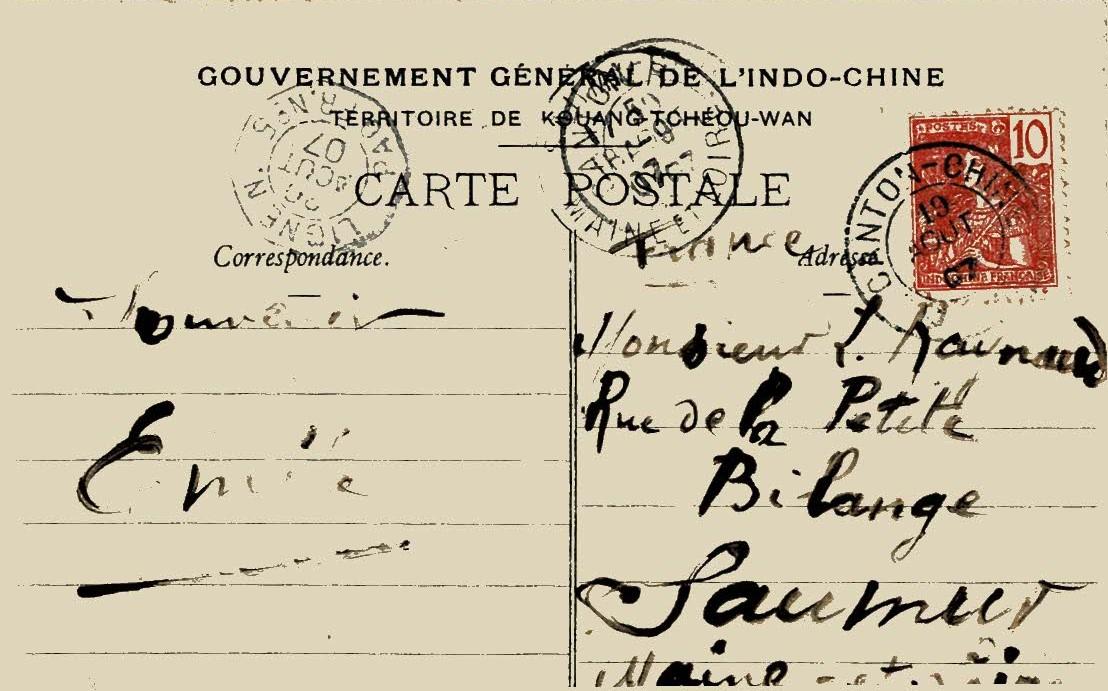 GOUVERNEMENT GÉNÉRAL DE L'INDO-CHINE
TERRITOIRE DE KOUANG-TCHÉOU-WAN
CARTE POSTALE
LIGNE N
PAQ. FR. Nº 5
20
AOUT
07
MAINE ET LOIRE
POSTES
10
INDO-CHINE FRANÇAISE
CANTON-CHINE
19
AOUT
07
Correspondance.
Souvenir
Emile
France
Adresse
Monsieur L. Raynaud
Rue de la Petite
Bilange
Saumur
Maine-et-Loire